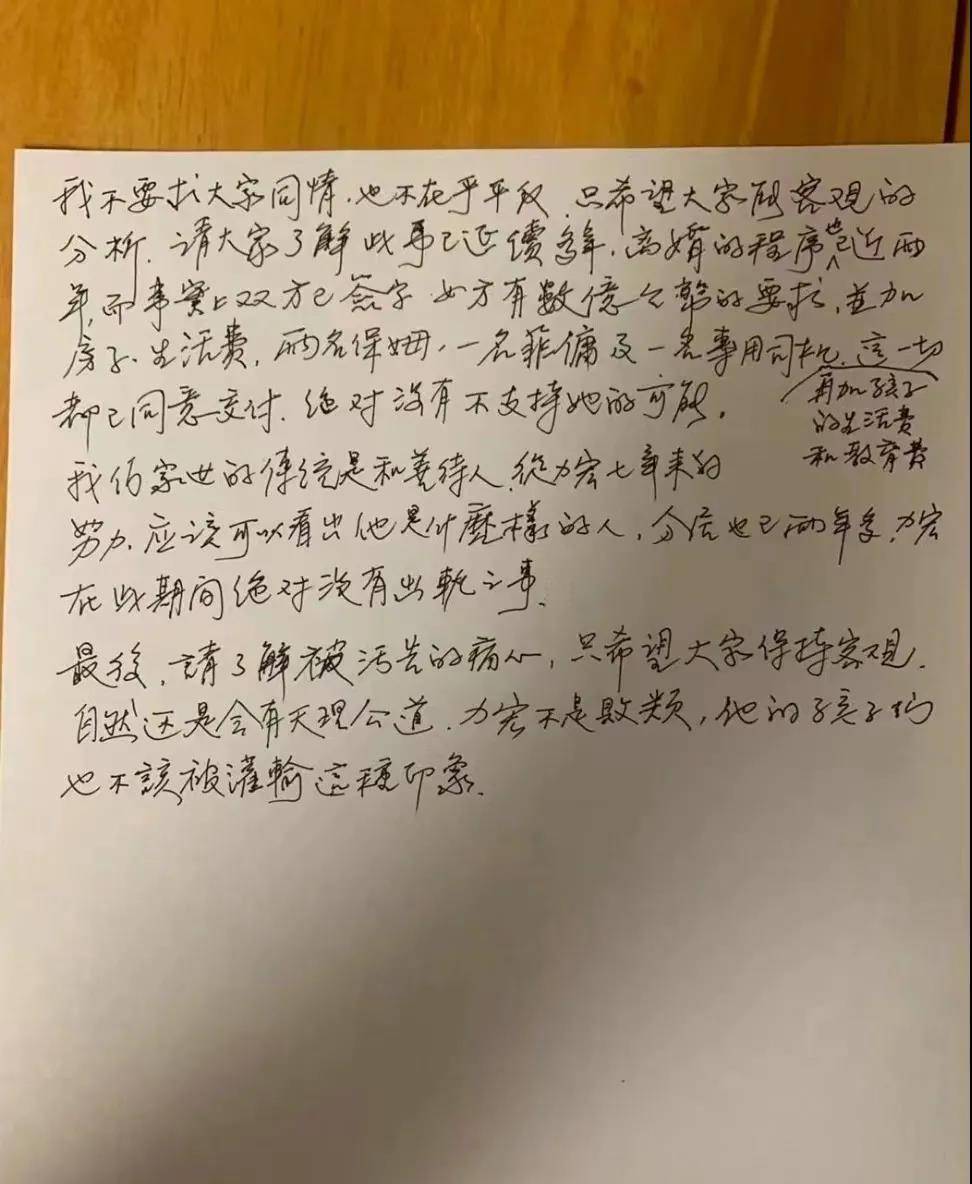 我不要求大家同情，也不在乎平反，只希望大家能客观的
分析。请大家了解此事已延續多年，离婚的程序也已近两
年，而事實上双方已簽字，女方有數億台幣的要求，並加
房子、生活費，两名保姆，一名菲傭及一名專用司机，這一切
再加孩子
的生活费
和教育費
都已同意交付，绝对没有不支持她的可能。
我们家世的傳统是和善待人，從力宏七年来的
努力，应该可以看出他是什麼樣的人，分居也已两年多，力宏
在此期间绝对没有出軌之事。
最後，請了解被污告的痛心，只希望大家保持客观，
自然还是会有天理公道，力宏不是败类，他的孩子们
也不該被灌輸這種印象。